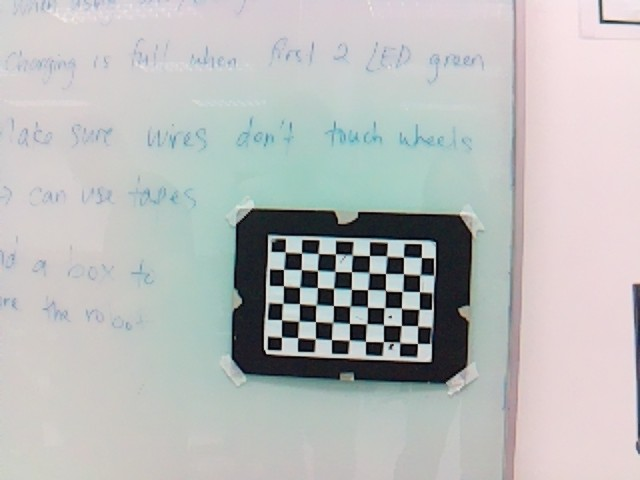 when using
Charging is full when first 2 LED green
Make sure wires don't touch wheels
can use tapes
a box to
the robot